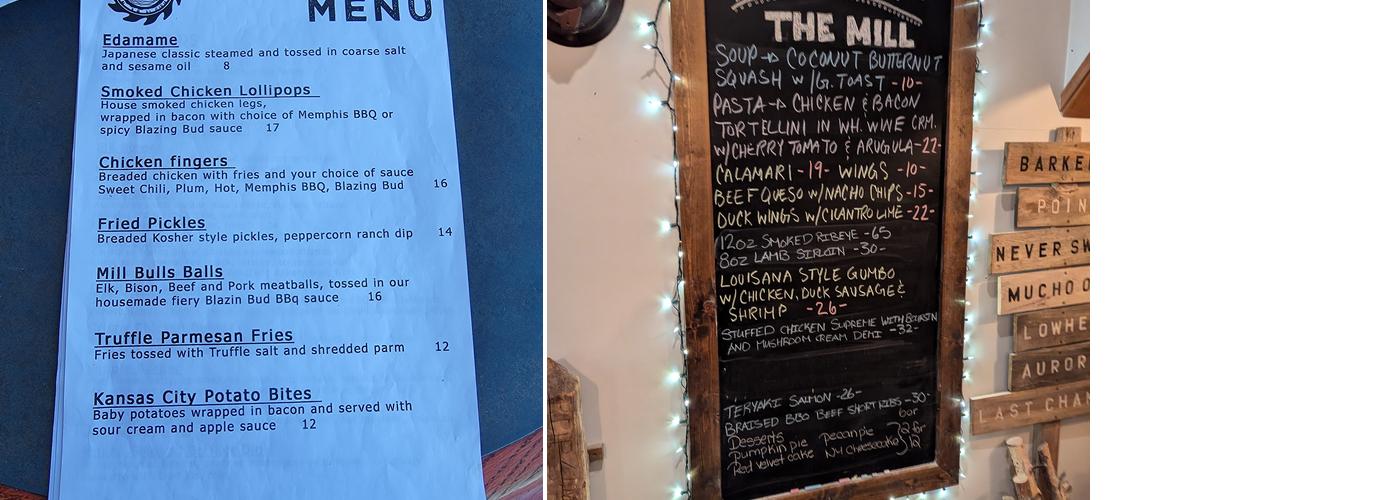 MENU
Edamame
Japanese classic steamed and tossed in coarse salt
and sesame oil 8
Smoked Chicken Lollipops
House smoked chicken legs,
wrapped in bacon with choice of Memphis BBQ or
spicy Blazing Bud sauce 17
Chicken fingers
Breaded chicken with fries and your choice of sauce
Sweet Chili, Plum, Hot, Memphis BBQ, Blazing Bud 16
Fried Pickles
Breaded Kosher style pickles, peppercorn ranch dip 14
Mill Bulls Balls
Elk, Bison, Beef and Pork meatballs, tossed in our
housemade fiery Blazin Bud BBq sauce 16
Truffle Parmesan Fries
Fries tossed with Truffle salt and shredded parm 12
Kansas City Potato Bites
Baby potatoes wrapped in bacon and served with
sour cream and apple sauce 12
THE MILL
SOUP → COCONUT BUTTERNUT
SQUASH W/G. TOAST -10-
PASTA → CHICKEN & BACON
TORTELLINI IN WH. WINE CRM.
W/CHERRY TOMATO & ARUGULA -22-
CALAMARI -19- WINGS -10-
BEEF QUESO W/NACHO CHIPS -15-
DUCK WINGS W/CILANTRO LIME -22-
12oz SMOKED RIBEYE -65
8oz LAMB SIRLOIN -30-
LOUISANA STYLE GUMBO
W/CHICKEN, DUCK SAUSAGE &
SHRIMP -26-
STUFFED CHICKEN SUPREME WITH BOURSIN
AND MUSHROOM CREAM DEMI -32-
TERYAKI SALMON -26-
BRAISED BBQ BEEF SHORT RIBS -30-
Desserts 6 or
Pumpkin pie Pecan pie 2 for
Red velvet cake NY cheesecake 12
BARKE
POIN
NEVER SW
MUCHO O
LOWHE
AUROR
LAST CHAN